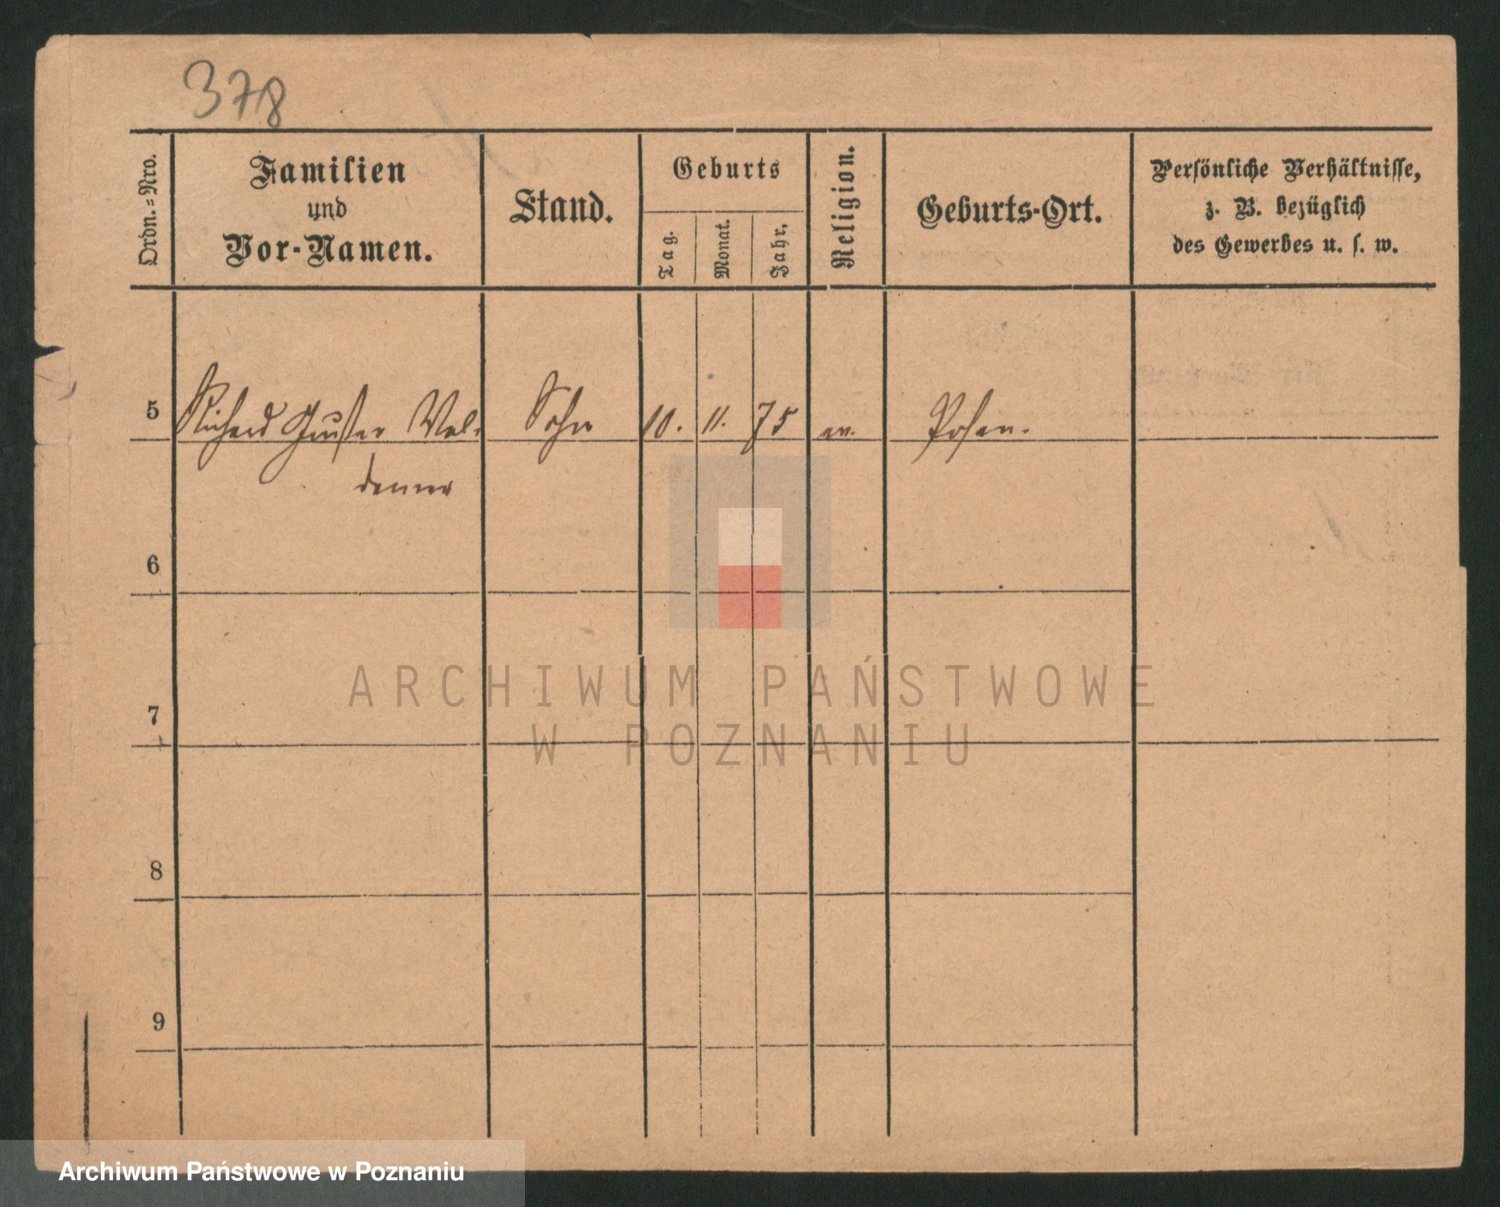 378
Ordn.-Nro.
Familien
und
Vor-Namen.
Stand.
Geburts
Tag.
Monat.
Jahr,
Religion.
Geburts-Ort.
Persönliche Verhältnisse,
z. B. bezüglich
des Gewerbes u. s. w.
5 Richard Gustav Wol- Sohn 10. 11. 75 ev. Posen.
6
7
8
9
ARCHIWUM PAŃSTWOWE
W POZNANIU
Archiwum Państwowe w Poznaniu